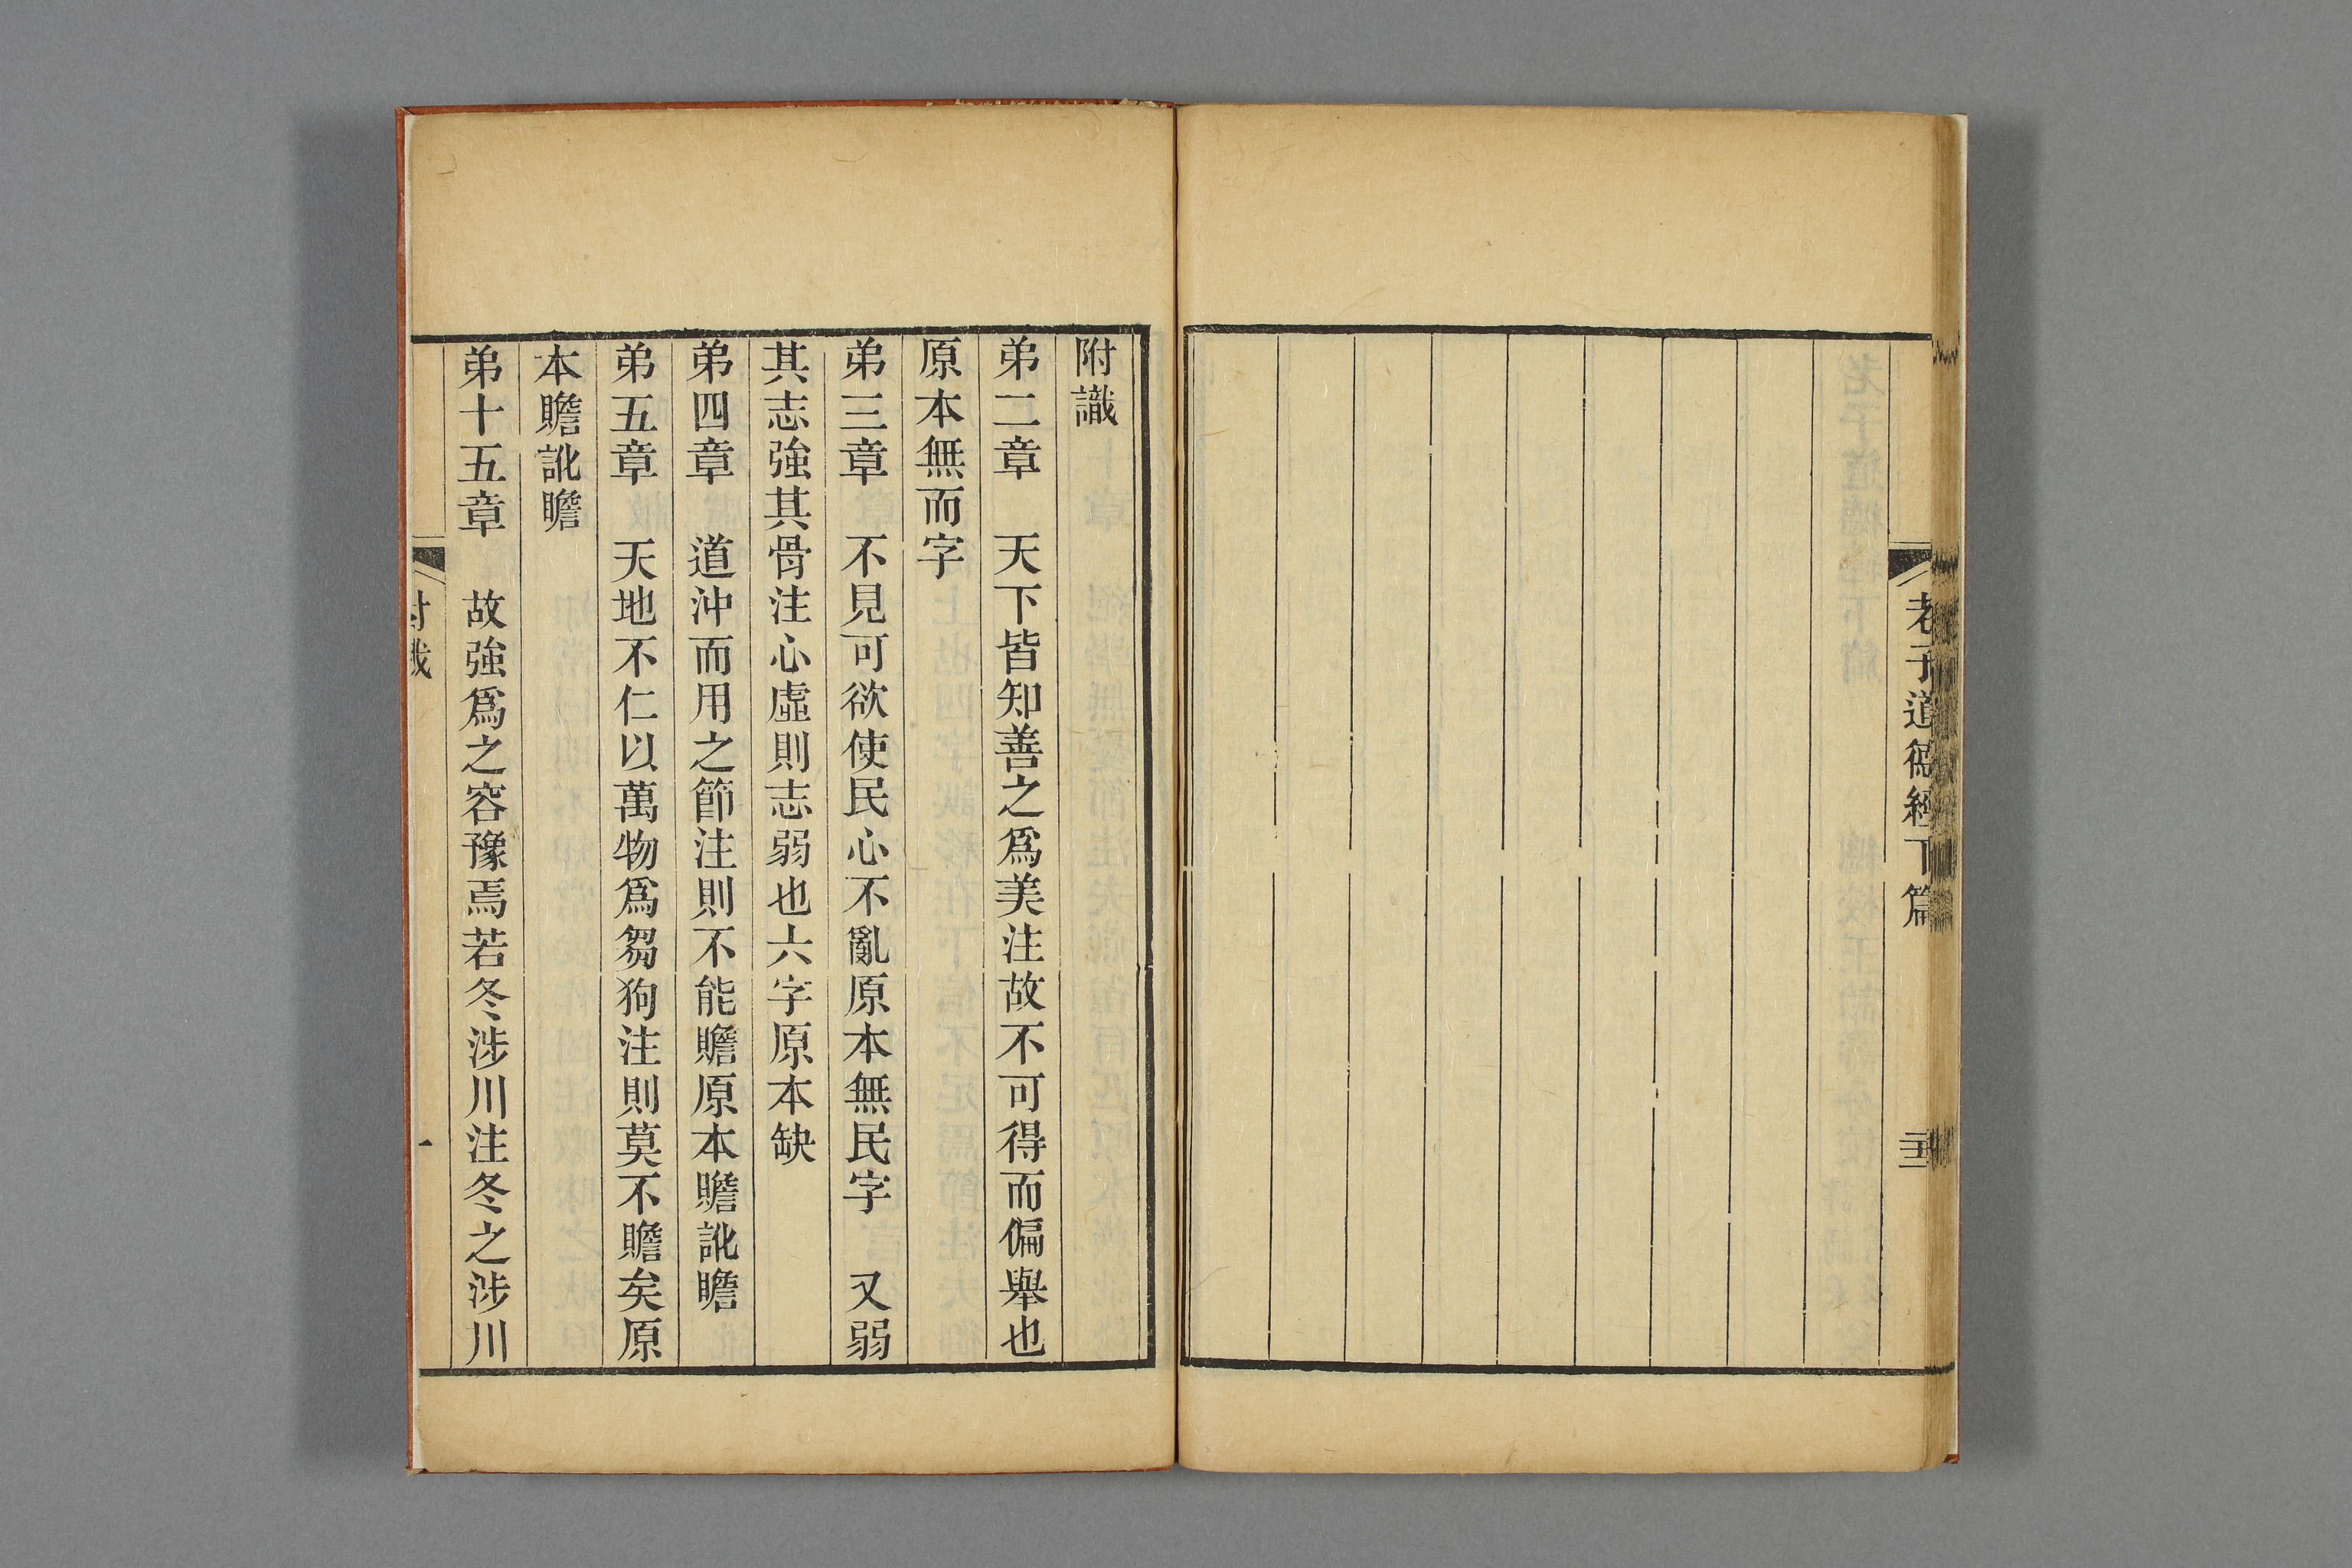 老子道德經下篇
附識
弟二章　天下皆知善之爲美注故不可得而偏舉也
原本無而字
弟三章　不見可欲使民心不亂原本無民字　又弱
其志強其骨注心虛則志弱也六字原本缺
弟四章　道沖而用之節注則不能贍原本贍訛瞻
弟五章　天地不仁以萬物爲芻狗注則莫不贍矣原
本贍訛瞻
弟十五章　故強爲之容豫焉若冬涉川注冬之涉川
附識
一